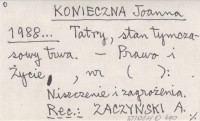 KONIECZNA Joanna
1988... Tatry, stan tymcza-
sowy trwa. – Prawo i
Życie, , nr ( ):
Niszczenie i zagrożenia.
Rec.: ZACZYŃSKI A.